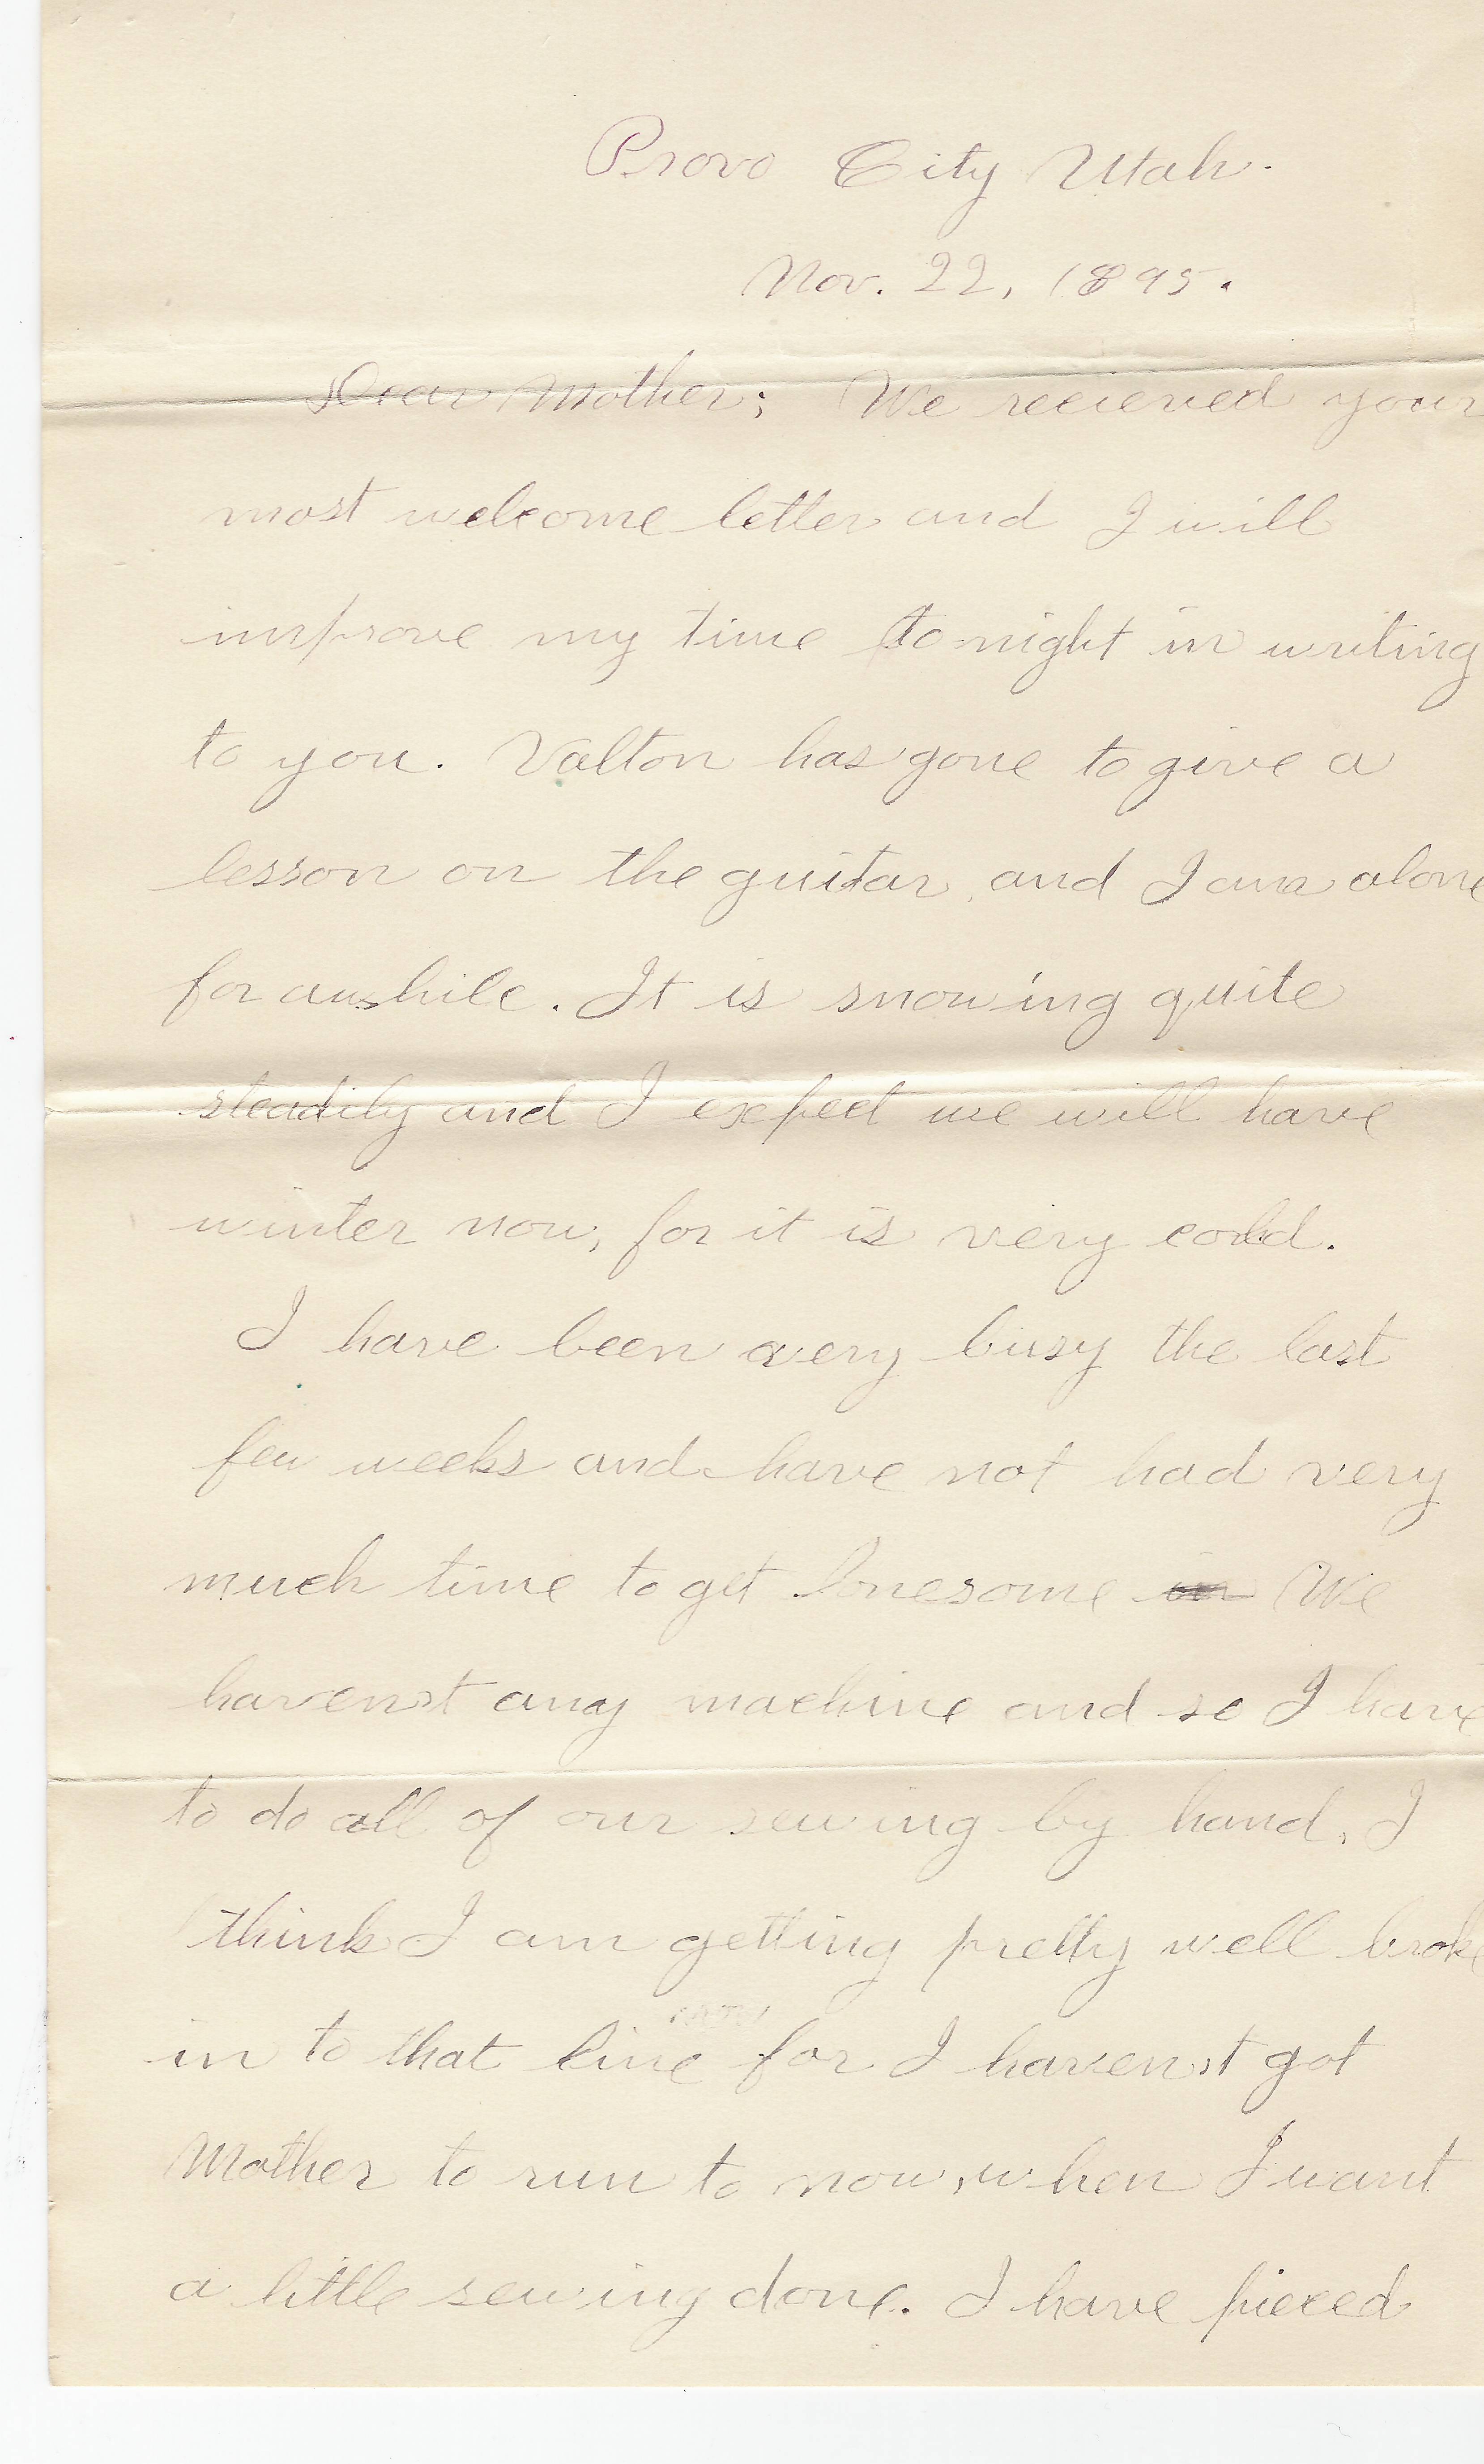 Provo City Utah.
Nov. 22, 1895.
Dear Mother; We recieved your
most welcome letter and I will
improve my time to night in writing
to you. Valton has gone to give a
lesson on the guitar, and I am alone
for awhile. It is snowing quite
steadily and I expect we will have
winter now, for it is very cold.
I have been very busy the last
few weeks and have not had very
much time to get lonesome in We
haven't any machine and so I have
to do all of our sewing by hand, I
think I am getting pretty well broke
in to that line for I haven't got
Mother to run to now, when I want
a little sewing done. I have pieced